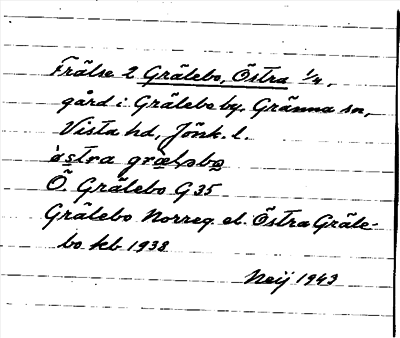 Frälse 2 Grälebo, Östra 1/4,
gård i Grälebo by, Gränna sn,
Vista hd, Jönk. l.
östra grälebo
Ö. Grälebo G 35
Grälebo Norreg. el. Östra Gräle-
bo kb 1938
Neij 1943